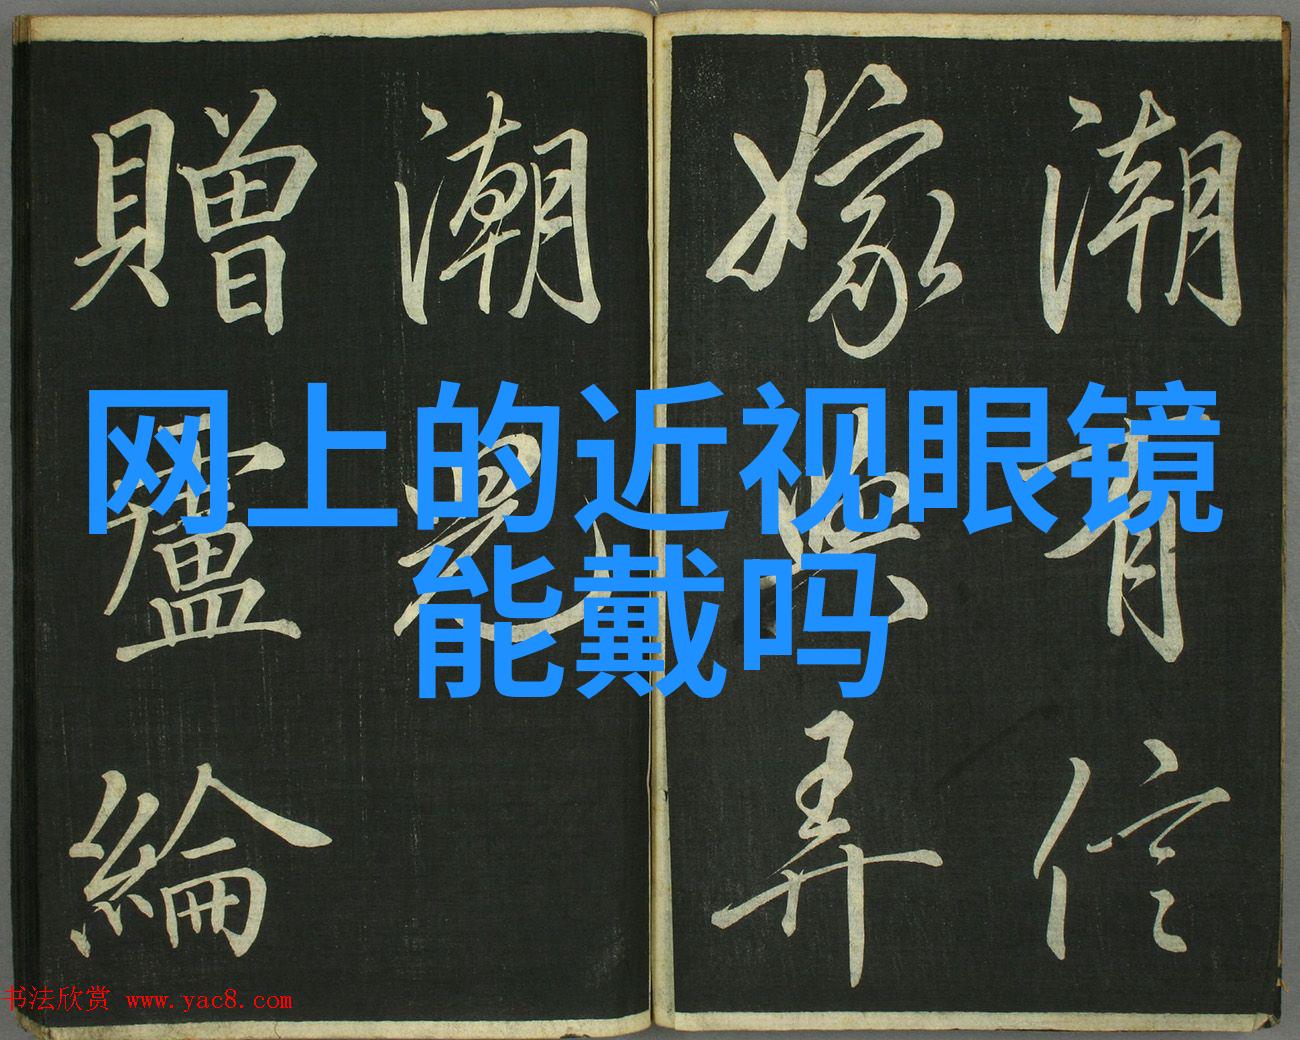 潮有信
嫁與弄
潮兒
贈盧綸
网上的近视眼镜
能戴吗
书法欣赏 www.yac8.com